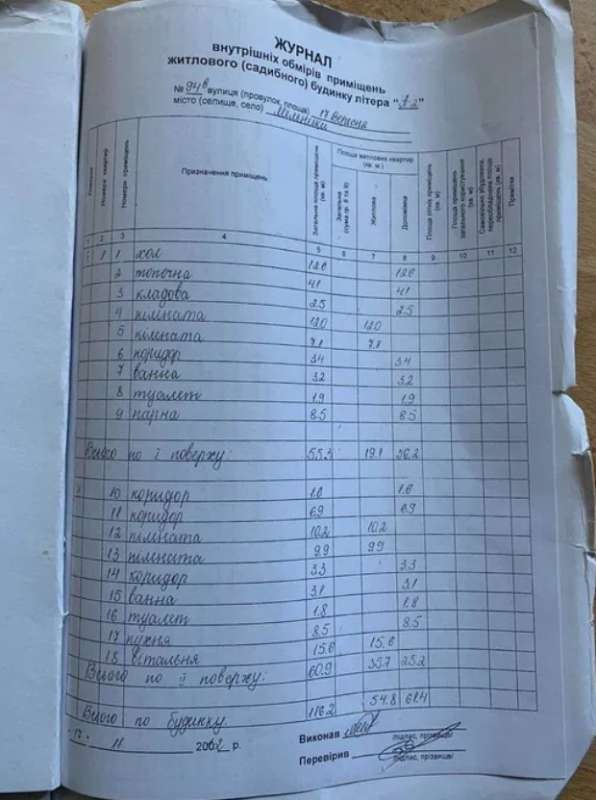 ЖУРНАЛ
внутрішніх обмірів приміщень
житлового (садибного) будинку літера "А-2"
№ 94в вулиця (провулок, площа) 17 вересня
місто (селище, село)
Номери квартир
Номери приміщень
Призначення приміщень
Загальна площа приміщень (кв. м)
Площа житлових квартир (кв. м.)
Загальна (сума гр. 8 та 9)
Житлова
Допоміжна
Площа літніх приміщень (кв. м)
Площа приміщень загального користування (кв. м)
Самовільно збудована, переобладнана площа приміщень (кв. м)
Примітка
1 2 3 4 5 6 7 8 9 10 11 12
1 1 хол 12.0 12.0
2 топочна 4.1 4.1
3 кладова 2.5 2.5
4 кімната 12.0 12.0
5 кімната 7.1 7.1
6 коридор 3.4 3.4
7 ванна 3.2 3.2
8 туалет 1.9 1.9
9 парна 8.5 8.5
Всього по І поверху: 55.3 19.1 36.2
10 коридор 1.6 1.6
11 коридор 6.9 6.9
12 кімната 10.2 10.2
13 кімната 9.9 9.9
14 коридор 3.3 3.3
15 ванна 3.1 3.1
16 туалет 1.8 1.8
17 кухня 8.5 8.5
18 вітальня 15.6 15.6
Всього по ІІ поверху: 60.9 35.7 25.2
Всього по будинку. 116.2 54.8 61.4
11 2002 р.
Виконав
підпис, прізвище
Перевірив
підпис, прізвище